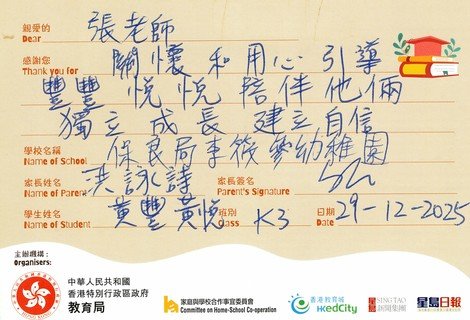 親愛的 張老師
Dear
感謝您 關懷和用心引導
Thank you for
豐豐 悅悅 陪伴他倆
獨立成長 建立自信
學校名稱 保良局李筱參幼稚園
Name of School
家長姓名 洪詠詩 家長簽名
Name of Parent Parent's Signature
學生姓名 黃豐 黃悅 班別 K3 日期 29-12-2025
Name of Student Class Date
主辦機構：
Organisers:
中華人民共和國
香港特別行政區政府
教育局
家庭與學校合作事宜委員會
Committee on Home-School Co-operation
香港教育城
HKedCity
SING TAO
星島新聞集團
星島日報